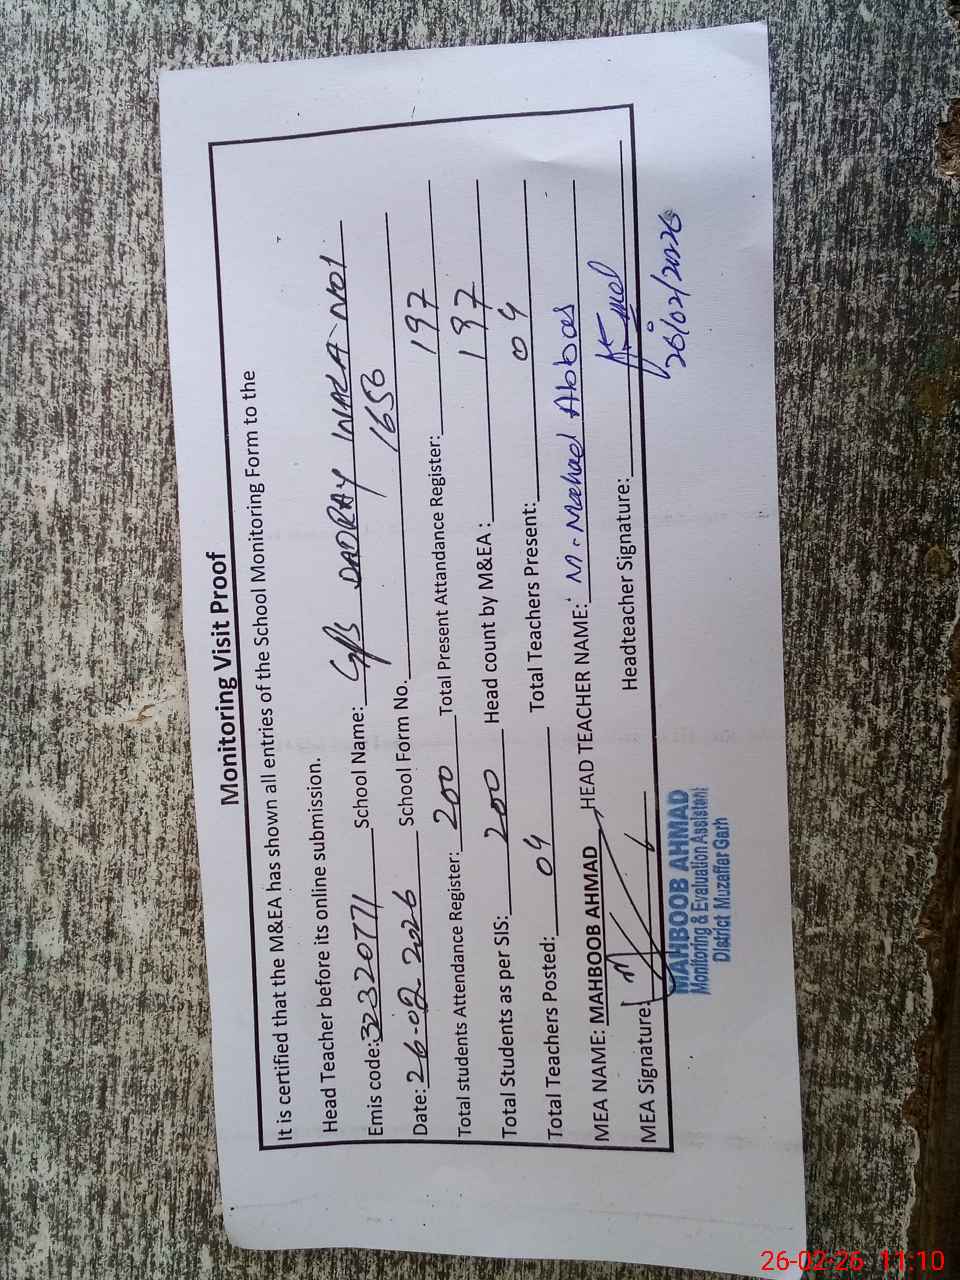 Monitoring Visit Proof
It is certified that the M&EA has shown all entries of the School Monitoring Form to the
Head Teacher before its online submission.
Emis code: 32320771 School Name: G/P/S DADRAY WALA NO1
Date: 26-02-2026 School Form No. 1656
Total students Attendance Register: 200 Total Present Attandance Register: 197
Total Students as per SIS: 200 Head count by M&EA : 197
Total Teachers Posted: 04 Total Teachers Present: 04
MEA NAME: MAHBOOB AHMAD HEAD TEACHER NAME: M. Mashad Abbas
MEA Signature Headteacher Signature:
26/02/2026
MAHBOOB AHMAD
Monitoring & Evaluation Assistant
District Muzaffar Garh
26-02-26 11:10